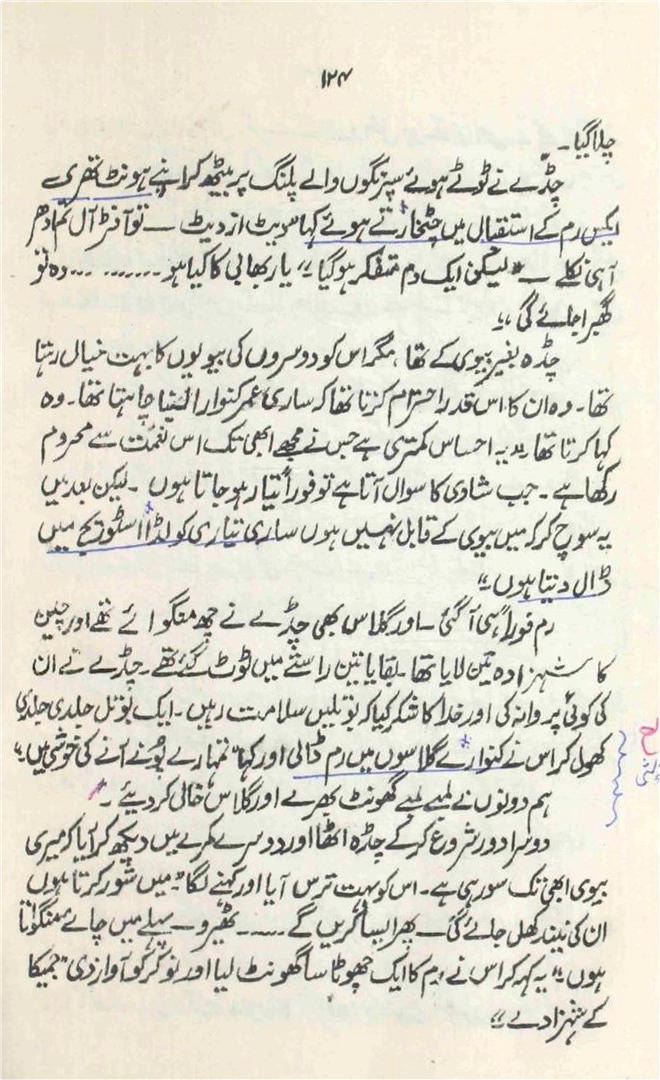 ۱۲۴
چلا گیا۔
چڈے نے ٹوٹے ہوئے سپرنگوں والے پلنگ پر بیٹھ کر اپنے ہونٹ تھری
ایکس رم کے استقبال میں چٹخارتے ہوئے کہا "دیٹ از دیٹ — تو آفٹر آل تم ادھر
آہی نکلے — " لیکن ایک دم متفکر ہوگیا " یار بھابی کا کیا ہو ........ وہ تو
گھبرا جائے گی "
چڈہ بغیر بیوی کے تھا، مگر اس کو دوسروں کی بیویوں کا بہت خیال رہتا
تھا۔ وہ ان کا اس قدر احترام کرتا تھا کہ ساری عمر کنوارا رہنا چاہتا تھا۔ وہ
کہا کرتا تھا "یہ احساس کمتری ہے جس نے مجھے ابھی تک اس نعمت سے محروم
رکھا ہے۔ جب شادی کا سوال آتا ہے تو فوراً تیار ہو جاتا ہوں۔ لیکن بعد میں
یہ سوچ کر کہ میں بیوی کے قابل نہیں ہوں ساری تیاری کولڈ اسٹوریج میں
ڈال دیتا ہوں۔"
رم فوراً ہی آگئی۔ اور گلاس بھی چڈے نے چھ منگوائے تھے اور چین
کا شہزادہ تین لایا تھا۔ بقایا تین راستے میں ٹوٹ گئے تھے۔ چڈے نے ان
کی کوئی پروا نہ کی اور خدا کا شکر کیا کہ بوتلیں سلامت رہیں۔ ایک بوتل جلدی جلدی
کھول کر اس نے کنوارے گلاسوں میں رم ڈالی اور کہا "تمہارے پونے آنے کی خوشی میں"
ہم دونوں نے لمبے لمبے گھونٹ بھرے اور گلاس خالی کر دیئے۔
دوسرا دور شروع کرکے چڈہ اٹھا اور دوسرے کمرے میں دیکھ کر آیا کہ میری
بیوی ابھی تک سو رہی ہے۔ اس کو بہت ترس آیا اور کہنے لگا "میں شور کرتا ہوں
ان کی نیند کھل جائے گی — پھر ایسا کریں گے ..... ٹھیرو — پہلے میں چائے منگواتا
ہوں" یہ کہہ کر اس نے رم کا ایک چھوٹا سا گھونٹ لیا اور نوکر کو آواز دی "جمیکا
کے شہزادے"